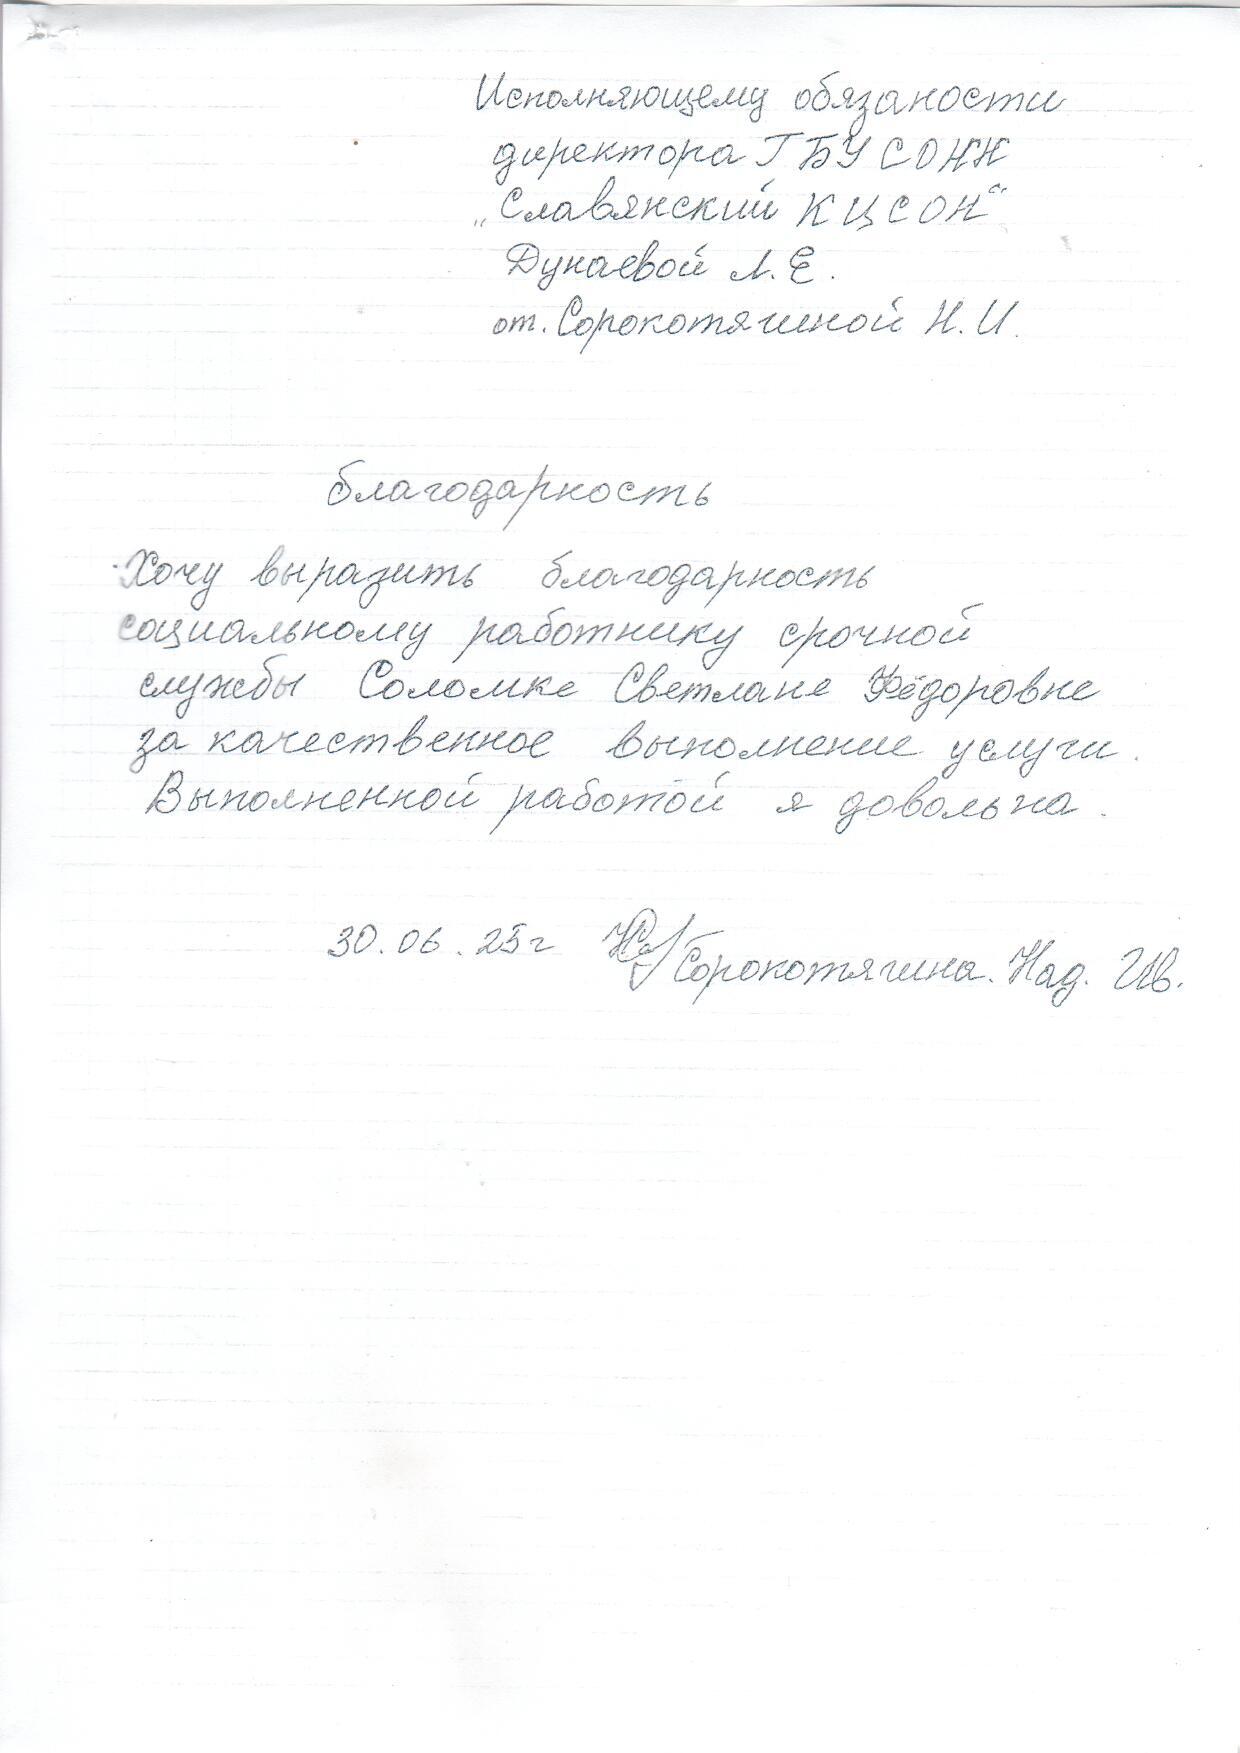 Исполняющему обязаности
директора ГБУ СОНН
„Славянский КЦСОН“
Дунаевой Л.Е.
от. Сорокотягиной Н.И.
благодарность
Хочу выразить благодарность
социальному работнику срочной
службы Соломке Светлане Фёдоровне
за качественное выполнение услуги.
Выполненной работой я довольна.
30.06.25г Сорокотягина. Над. Ив.